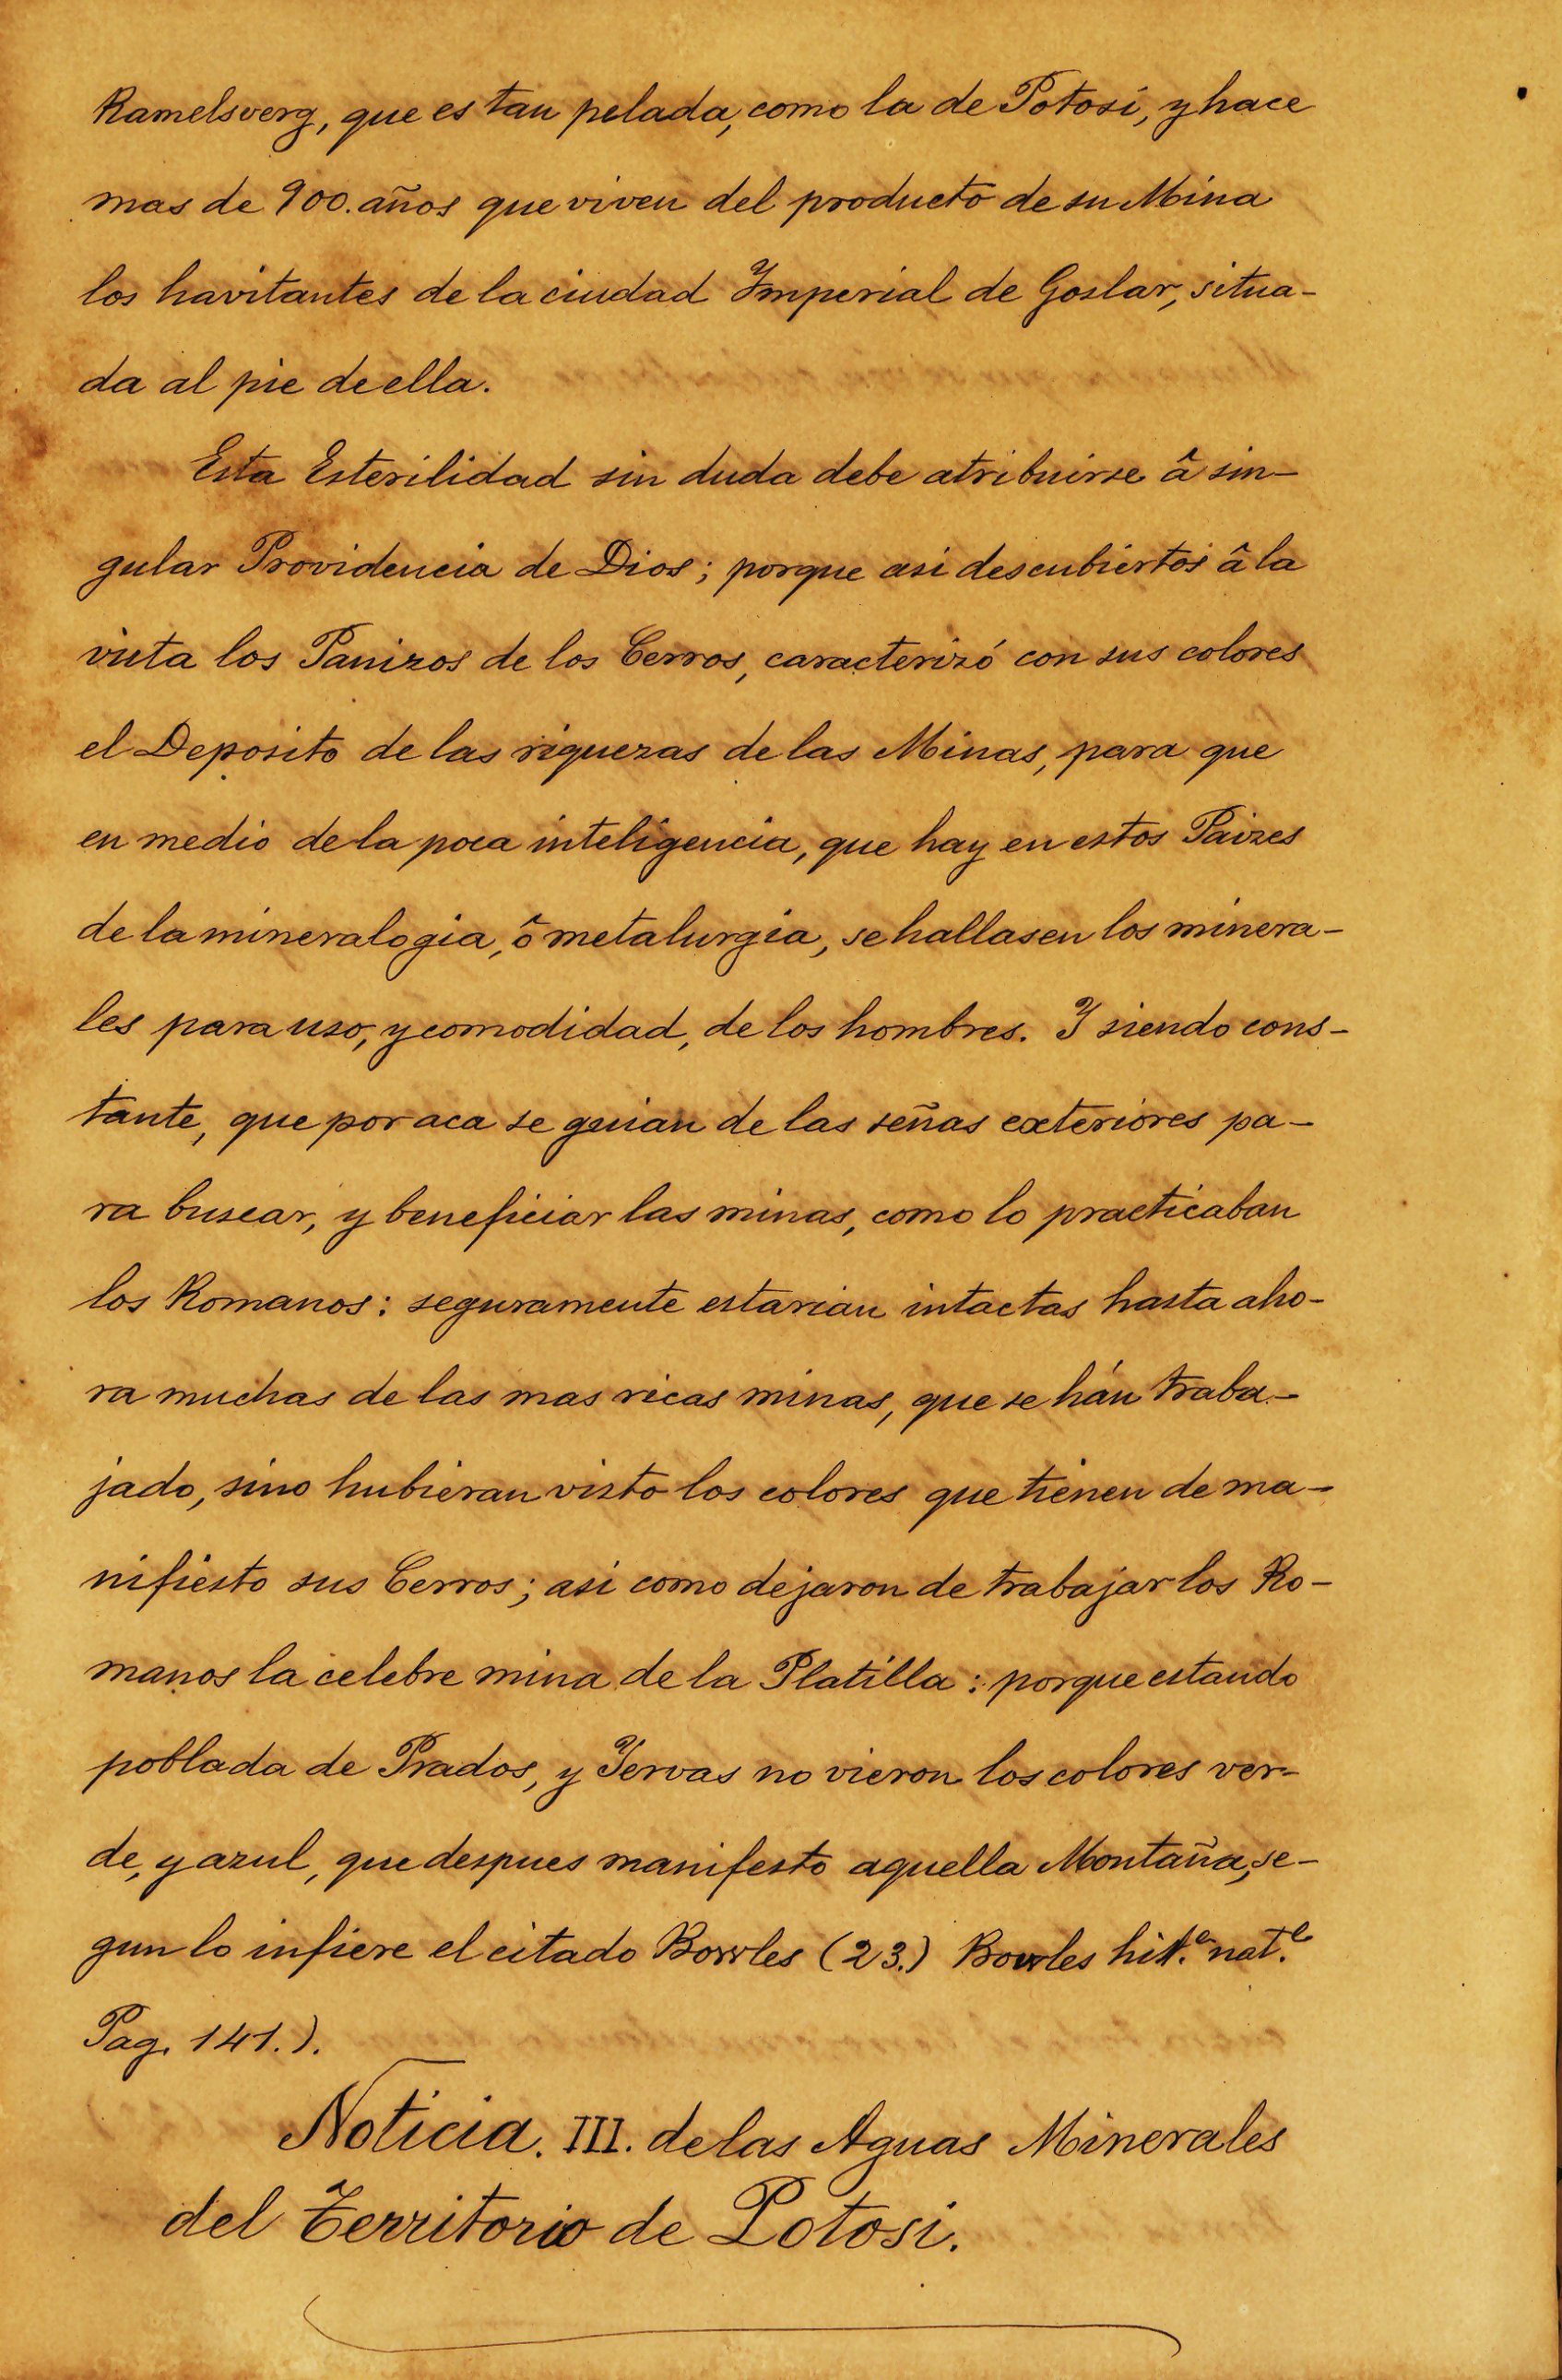 Ramelsverg, que es tan pelada, como la de Potosi, y hace
mas de 900. años que viven del producto de su Mina
los havitantes de la ciudad Ymperial de Goslar, situa-
da al pie de ella.
Esta Esterilidad sin duda debe atribuirse â sin-
gular Providencia de Dios; porque asi descubiertos â la
vista los Panizos de los Cerros, caracterizó con sus colores
el Deposito de las riquezas de las Minas, para que
en medio de la poca inteligencia, que hay en estos Paizes
de la mineralogia, ô metalurgia, se hallasen los minera-
les para uso, y comodidad, de los hombres. Y siendo cons-
tante, que por aca se guian de las señas exteriores pa-
ra buscar, y beneficiar las minas, como lo practicaban
los Romanos: seguramente estarian intactas hasta aho-
ra muchas de las mas ricas minas, que se hán traba-
jado, sino hubieran visto los colores que tienen de ma-
nifiesto sus Cerros; asi como dejaron de trabajar los Ro-
manos la celebre mina de la Platilla: porque estando
poblada de Prados, y Yervas no vieron los colores ver-
de, y azul, que despues manifesto aquella Montaña, se-
gun lo infiere el citado Bowles (23.) Bowles hist.ª nat.l
Pag. 141.).
Noticia. III. de las Aguas Minerales
del Territorio de Potosi.